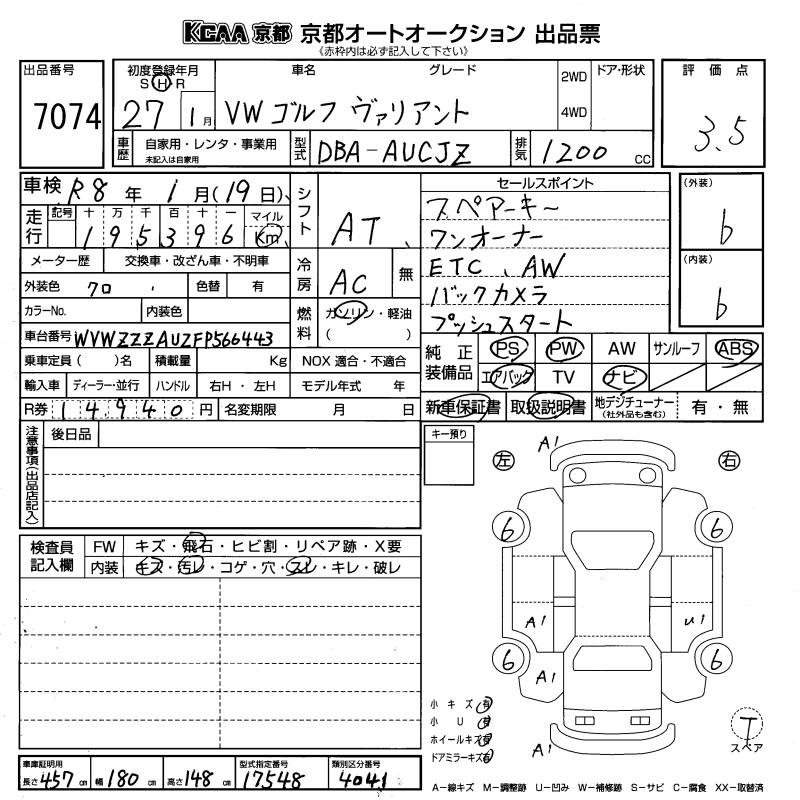 KCAA 京都 京都オートオークション 出品票
《赤枠内は必ず記入して下さい》
出品番号
7074
初度登録年月
S H R
27 1月
車名 グレード
VW ゴルフ ヴァリアント
2WD
4WD
ドア・形状
車歴
自家用・レンタ・事業用
未記入は自家用
型式
DBA-AUCJZ
排気
1200 CC
評価点
3.5
車検 R8年 1月(19日)
走行
記号 十 万 千 百 十 一 マイル
195396 Km
シフト
AT
メーター歴 交換車・改ざん車・不明車
冷房
AC
無
外装色 70 色替 有
カラーNo. 内装色
燃料
ガソリン・軽油
( )
車台番号 WVWZZZAUZFP566443
乗車定員( )名 積載量 Kg NOX 適合・不適合
輸入車 ディーラー・並行 ハンドル 右H・左H モデル年式 年
R券 14940円 名変期限 月 日
セールスポイント
スペアーキー
ワンオーナー
ETC、AW
バックカメラ
プッシュスタート
(外装)
b
(内装)
b
純正装備品
PS PW AW サンルーフ ABS
エアバック TV ナビ
新車保証書 取扱説明書 地デジチューナー
(社外品も含む)
有・無
注意事項(出品店記入)
後日品
キー預り
検査員記入欄
FW キズ・飛石・ヒビ割・リペア跡・X要
内装 キズ・汚レ・コゲ・穴・スレ・キレ・破レ
A1
左 右
6 6
A1 U1
6 6
A1
A1
小キズ 有
小U 有
ホイールキズ 有
ドアミラーキズ 有
T
スペア
車庫証明用
長さ457cm 幅180cm 高さ148cm
型式指定番号
17548
類別区分番号
4041
A－線キズ M－調整跡 U－凹み W－補修跡 S－サビ C－腐食 XX－取替済